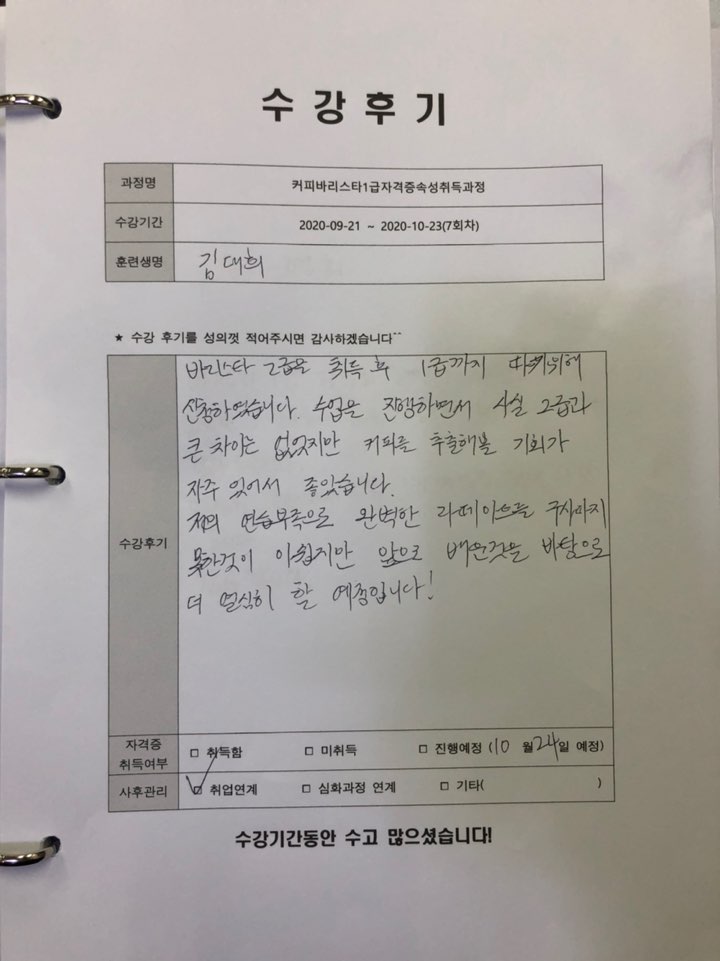 수강후기
과정명 커피바리스타1급자격증속성취득과정
수강기간 2020-09-21 ~ 2020-10-23(7회차)
훈련생명 김대희
★ 수강 후기를 성의껏 적어주시면 감사하겠습니다^^
수강후기
바리스타 2급을 취득 후 1급까지 따기위해
신청하였습니다. 수업을 진행하면서 사실 2급과
큰 차이는 없었지만 커피를 추출해볼 기회가
자주 있어서 좋았습니다.
저의 연습부족으로 완벽한 라떼아트를 구사하지
못한것이 아쉽지만 앞으로 배운것을 바탕으로
더 열심히 할 예정입니다!
자격증 취득여부 □ 취득함 □ 미취득 □ 진행예정 (10 월 24일 예정)
사후관리 □ 취업연계 □ 심화과정 연계 □ 기타( )
수강기간동안 수고 많으셨습니다!